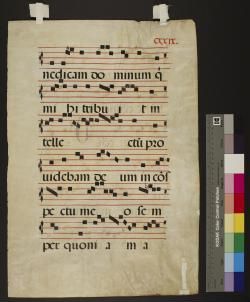 CXXIX.
nedicam do minum q̃
mi hi tribu i t in
telle ctũ pro
uidebam de um in cõs
pe ctu me o sem
per quoni a m a